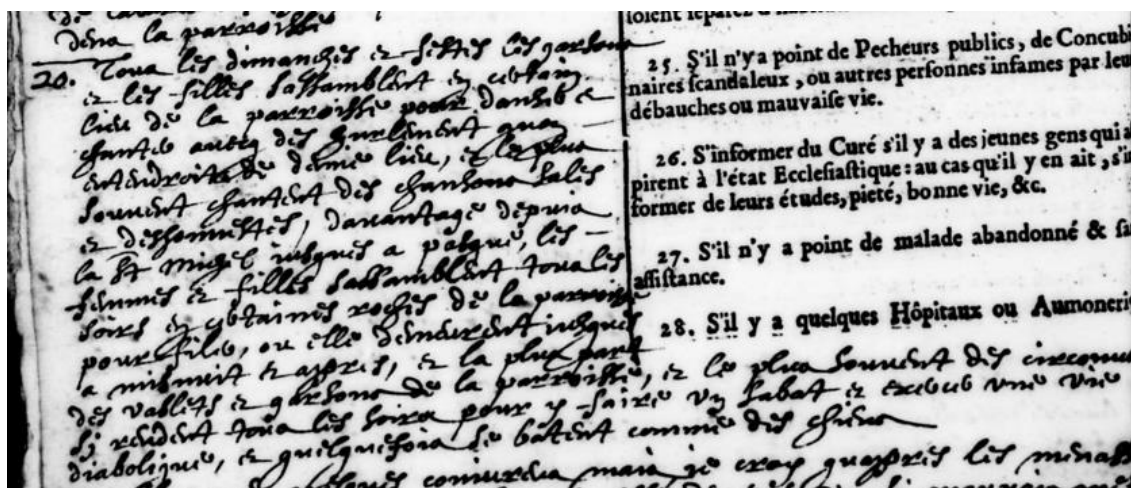 dena la parroisse
20. Tous les dimanches et festes les garsons
et les filles sassamblent en certain
lieu de la parroisse pour danser et
chanter avecq des hurlement quon
entendroit de demie lieu, et le plus
souvent chantent des chansons sales
et deshonnestes, davantage depuis
la St Michel jusques a pasque, les
femmes et filles sassamblent tous les
soirs en certaines roches de la parroisse
pour filer, ou elle demeurent jusques
a minuit et apres, et la plus part
des vallets et garsons de la parroisse, et le plus souvent des circonvoi
sy rendent tous les soirs pour y faire un sabat et exercer une vie
diabolique, et quelquefois se batent comme des chiens
mais je croy quapres les menass
25. S'il n'y a point de Pecheurs publics, de Concubi
naires ſcandaleux, ou autres perſonnes infames par leu
débauches ou mauvaiſe vie.
26. S'informer du Curé s'il y a des jeunes gens qui a
pirent à l'état Eccleſiaſtique: au cas qu'il y en ait, s'in
former de leurs études, pieté, bonne vie, &c.
27. S'il n'y a point de malade abandonné & ſa
aſſiſtance.
28. S'il y a quelques Hôpitaux ou Aumoneri